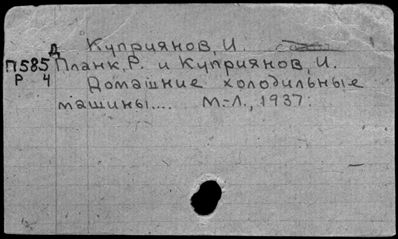 Д Куприянов, И.
П585 Планк, Р. и Куприянов, И.
Р 4 Домашние холодильные
машины.... М.-Л., 1937.